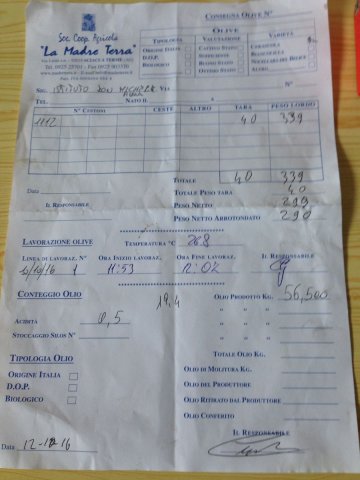 CONSEGNA OLIVE N°
Soc. Coop. Agricola
"La Madre Terra"
OLIVE
TIPOLOGIA VALUTAZIONE VARIETÀ
ORIGINE ITALIA CATTIVO STATO
D.O.P. BIANCOLILLA
BIOLOGICO BUONO STATO NOCELLARA DEL BELICE
OTTIMO STATO Altro
SIG. ISTITUTO DON VIA
TEL. NATO IL A
N° CESTINO CESTE ALTRO TARA PESO LORDO
40 339
TOTALE 40 339
TOTALE PESO TARA 40
Data
PESO NETTO 299
IL RESPONSABILE
PESO NETTO ARROTONDATO 290
LAVORAZIONE OLIVE TEMPERATURA °C 26.8
LINEA DI LAVORAZ. N° ORA INIZIO LAVORAZ. ORA FINE LAVORAZ. IL RESPONSABILE
1 11:53 12:02
CONTEGGIO OLIO 19,4 OLIO PRODOTTO KG. 56,500
ACIDITÀ 0,5
STOCCAGGIO SILOS N°
TOTALE OLIO KG.
TIPOLOGIA OLIO
OLIO DI MOLITURA KG.
ORIGINE ITALIA
OLIO DEL PRODUTTORE
D.O.P.
OLIO RITIRATO DAL PRODUTTORE
BIOLOGICO
OLIO CONFERITO
IL RESPONSABILE
Data 12-10-16